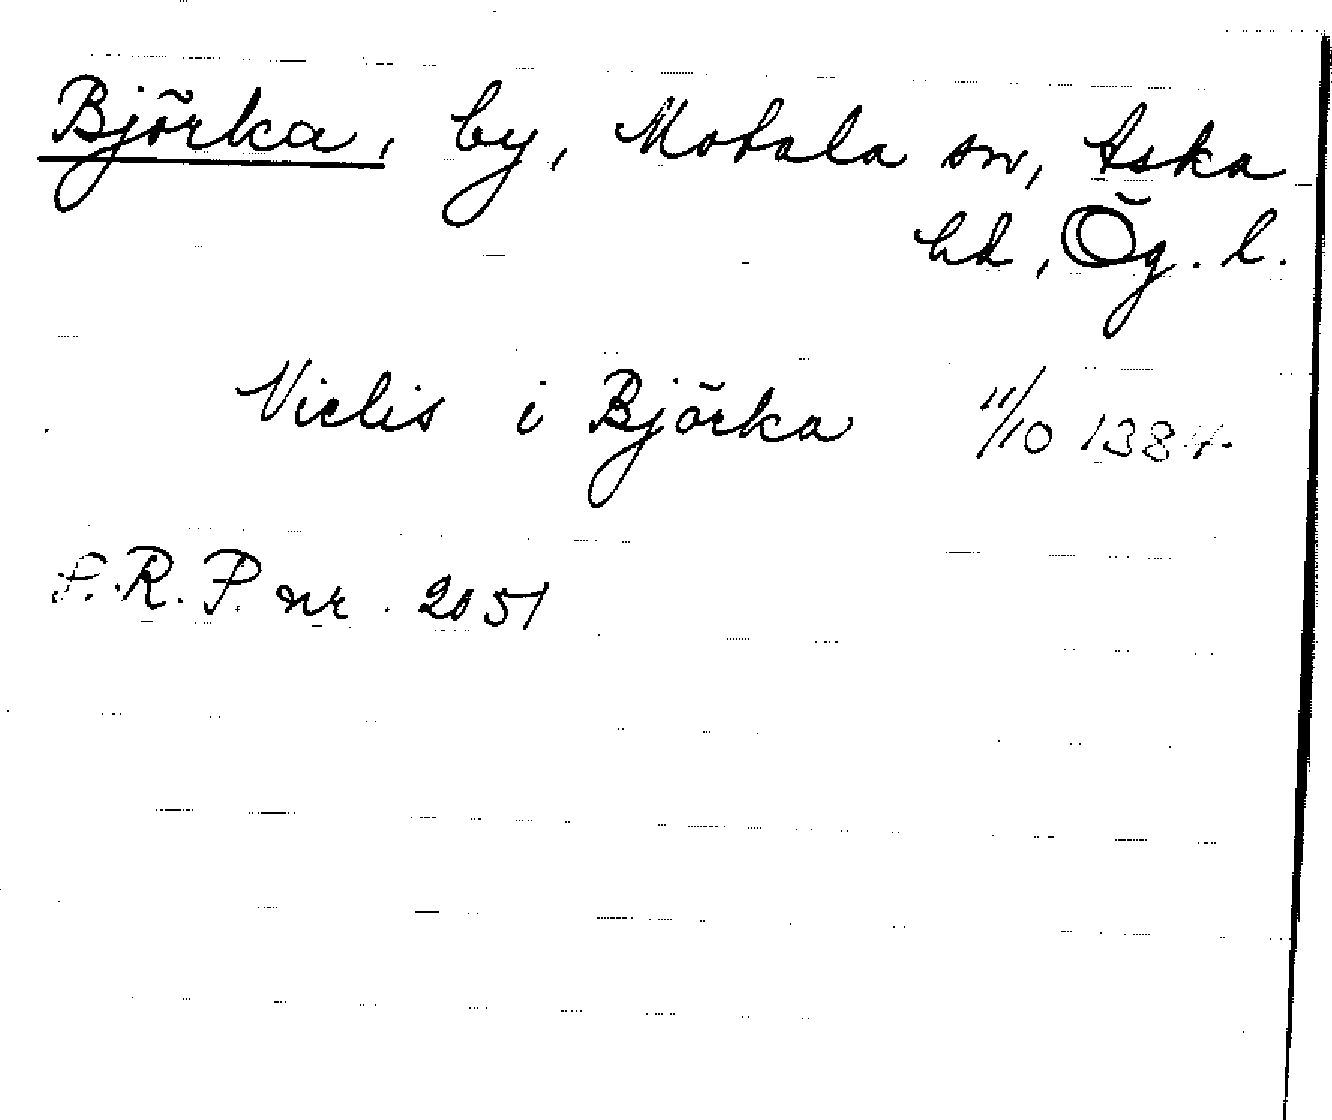 Björka, by, Motala sn, Aska
hd, Ög. l.
Niclis i Björka 11/10 1384.
S.R.P. nr. 2051